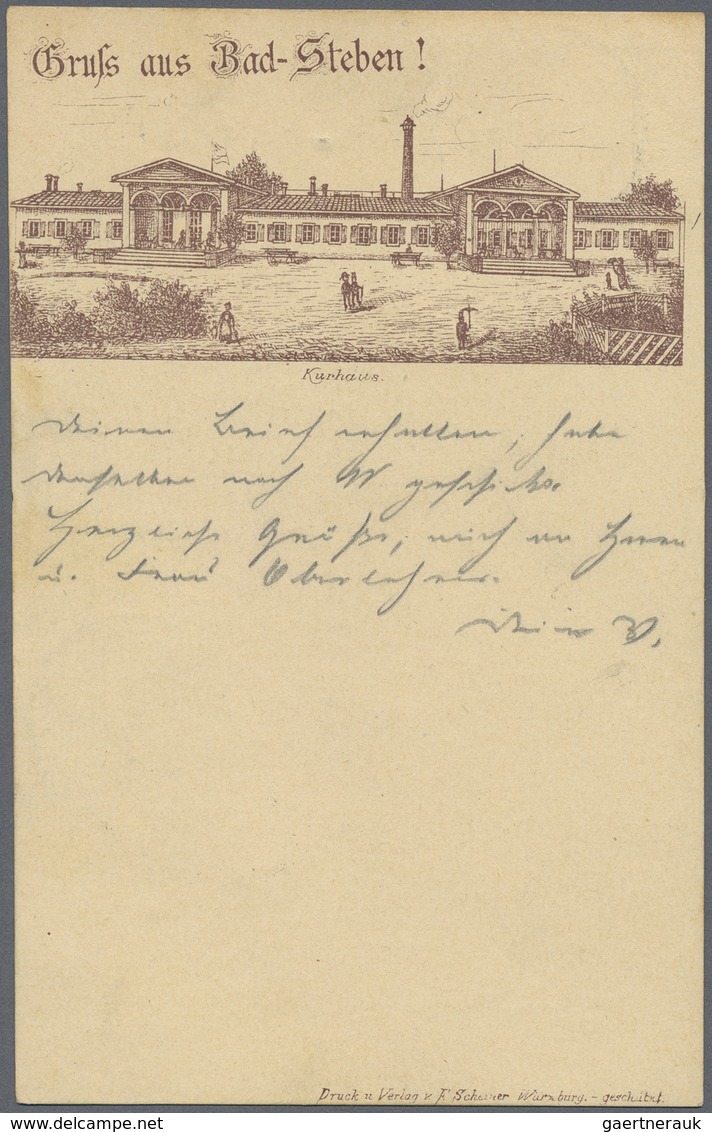 Gruss aus Bad-Steben!
Kurhaus.
Deinen Brief erhalten, habe
denselben nach W geschickt.
Herzliche Grüße, auch an Herrn
u. Frau Oberlehrer.
Dein
Druck u Verlag v. F. Scheiner Würzburg. – geschützt.
gaertnerauk